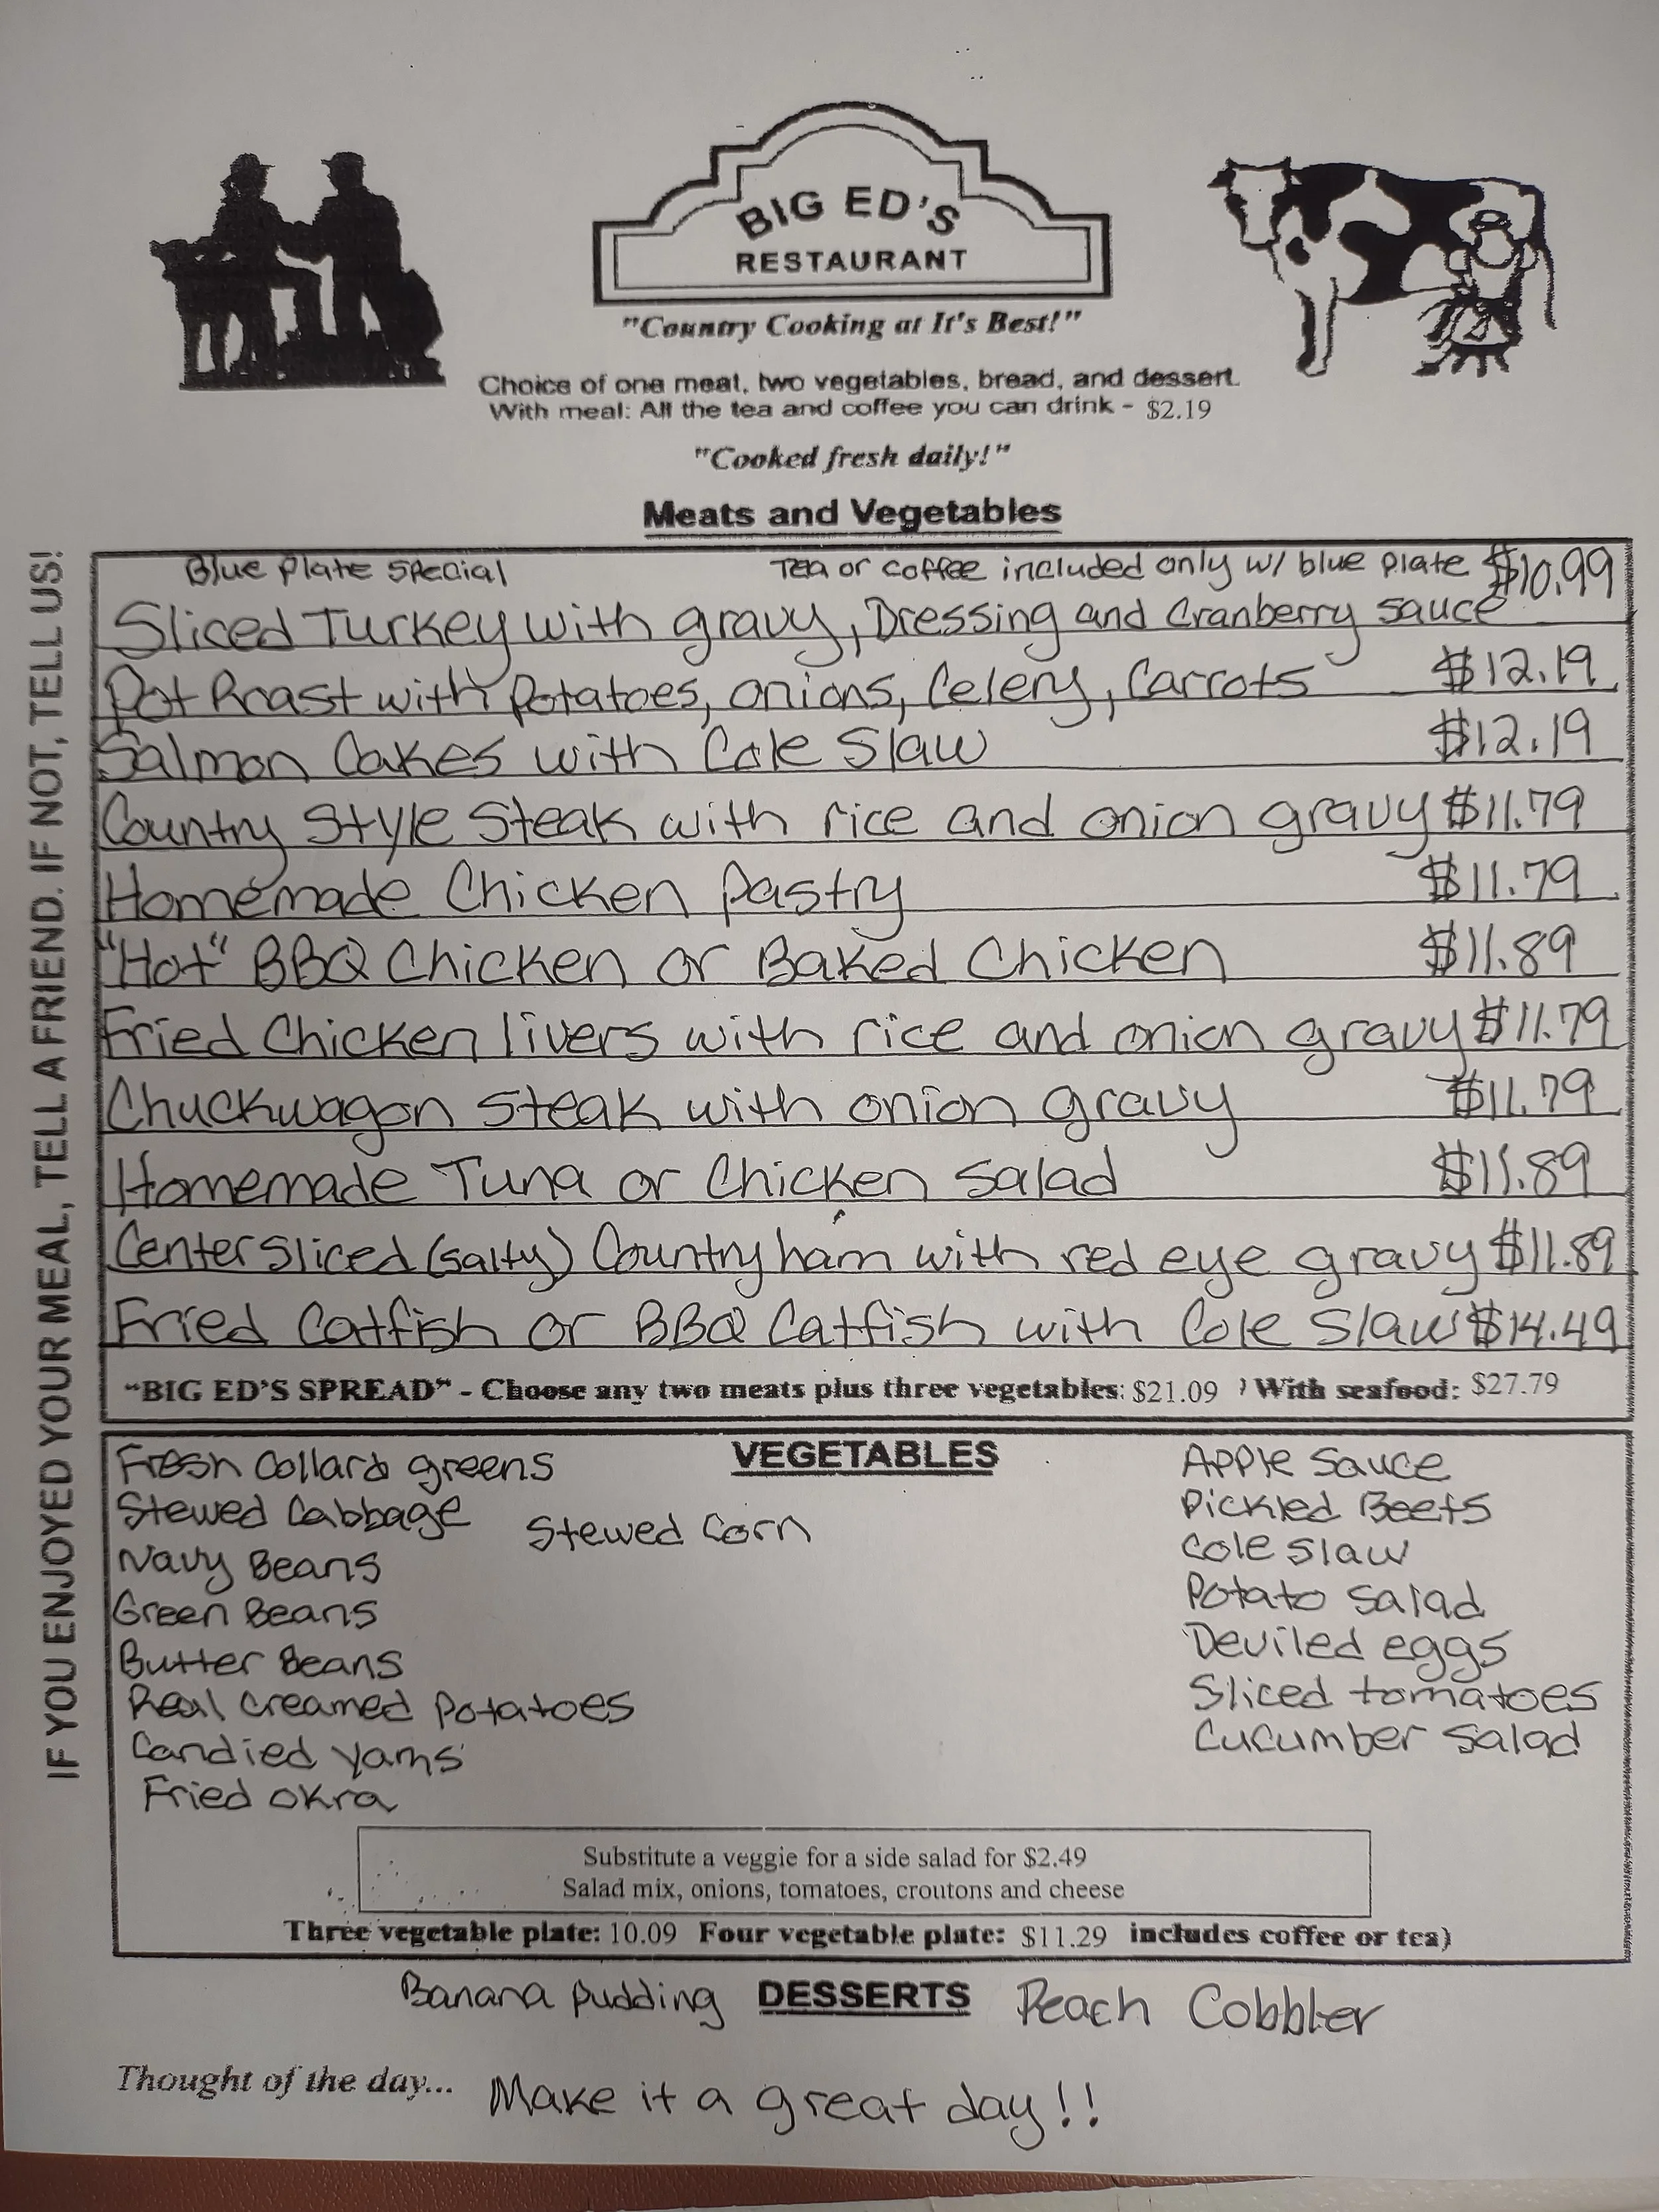 BIG ED'S
RESTAURANT
"Country Cooking at It's Best!"
Choice of one meat, two vegetables, bread, and dessert.
With meal: All the tea and coffee you can drink - $2.19
"Cooked fresh daily!"
Meats and Vegetables
IF YOU ENJOYED YOUR MEAL, TELL A FRIEND. IF NOT, TELL US!
Blue Plate Special Tea or coffee included only w/ blue plate $10.99
Sliced Turkey with gravy, Dressing and Cranberry sauce
Pot Roast with potatoes, onions, Celery, Carrots $12.19
Salmon Cakes with Cole Slaw $12.19
Country Style Steak with rice and onion gravy $11.79
Homemade Chicken Pastry $11.79
"Hot" BBQ Chicken or Baked Chicken $11.89
Fried Chicken livers with rice and onion gravy $11.79
Chuckwagon Steak with onion gravy $11.79
Homemade Tuna or Chicken Salad $11.89
Center Sliced (salty) Country ham with red eye gravy $11.89
Fried Catfish or BBQ Catfish with Cole Slaw $14.49
"BIG ED'S SPREAD" - Choose any two meats plus three vegetables: $21.09 ) With seafood: $27.79
VEGETABLES
Fresh Collard greens
Stewed Cabbage
Navy Beans
Green Beans
Butter Beans
Real Creamed Potatoes
Candied Yams
Fried Okra
Stewed Corn
Apple Sauce
Pickled Beets
Cole Slaw
Potato Salad
Deviled eggs
Sliced tomatoes
Cucumber Salad
Substitute a veggie for a side salad for $2.49
Salad mix, onions, tomatoes, croutons and cheese
Three vegetable plate: 10.09 Four vegetable plate: $11.29 includes coffee or tea)
Banana Pudding DESSERTS Peach Cobbler
Thought of the day... Make it a great day!!